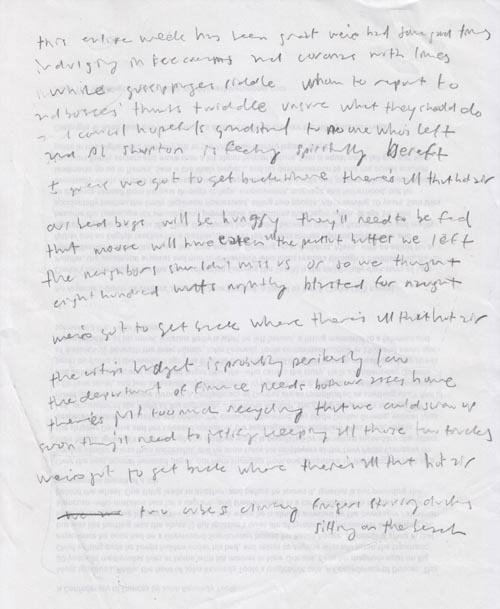 this entire week has been great we've had some good times
indulging in ice creams and coronas with limes
while gossip pages riddle whom to report to
and bosses' thumbs twiddle unsure what they should do
council hopefuls grandstand to no one who's left
and Al Sharpton is feeling spiritually bereft
I guess we got to get back where there's all that hot air
our bed bugs will be hungry they'll need to be fed
that mouse will have eaten all the peanut butter we left
the neighbors shouldn't miss us or so we thought
eight hundred watts nightly blasted for naught
we've got to get back where there's all that hot air
the city's budget is probably perilously low
the department of finance needs both our asses home
there's just too much recycling that we could screw up
soon they'll need to justify keeping all those tow trucks
we've got to get back where there's all that hot air
two cubes clumsy fingers starving ducks
sitting on the beach